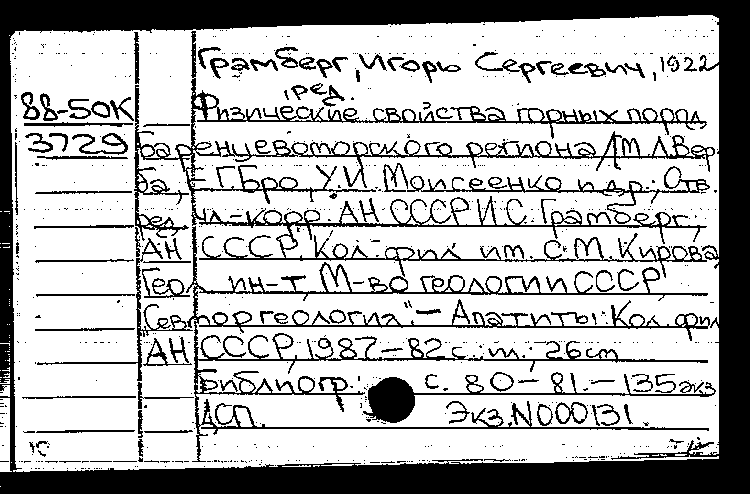 Грамберг, Игорь Сергеевич, 1922
ред.
88-50К Физические свойства горных пород
3729 Баренцевоморского региона / М.Л. Вер-
ба, Е.Г. Бро, У.И. Моисеенко и др.; Отв.
ред. чл.-корр. АН СССР И.С. Грамберг;
АН СССР, Кол. фил. им. С.М. Кирова,
Геол. ин-т, М-во геологии СССР,
"Севморгеология". – Апатиты: Кол. фил.
АН СССР, 1987 – 82 с.: ил.; 26 см
Библиогр.: с. 80 – 81. – 135 экз
ДСП. Экз. N 000131.